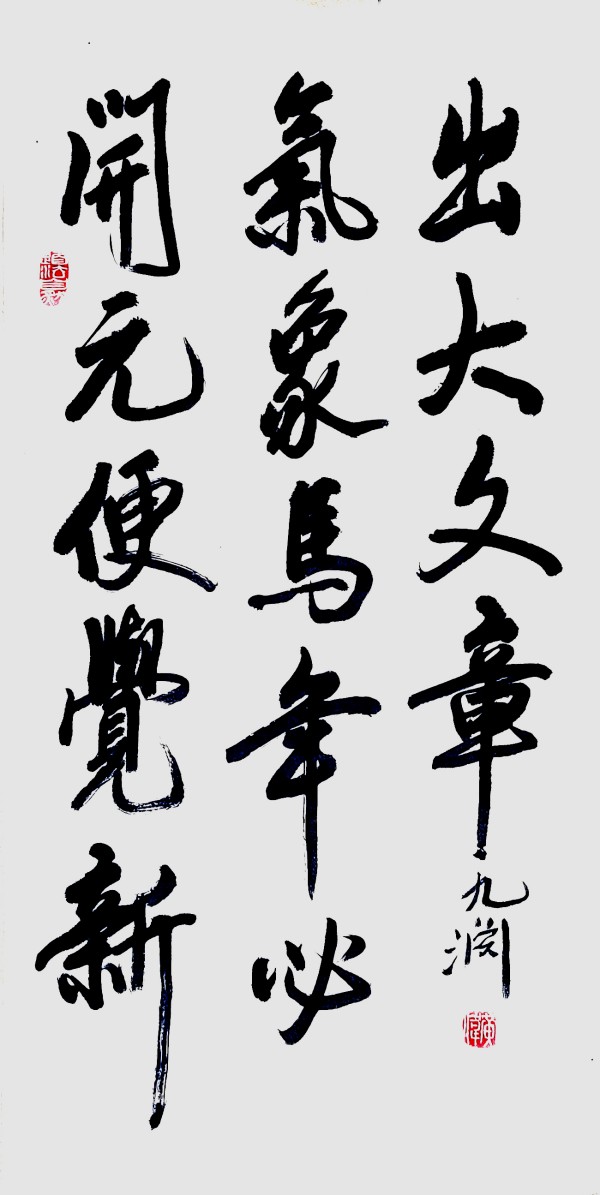 開元便覺新
氣象馬年必
出大文章
九渊